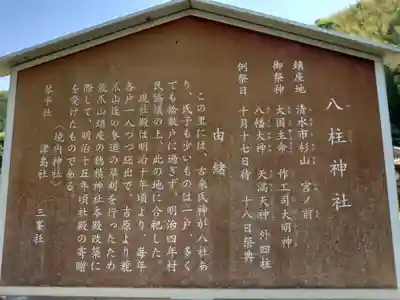 八柱神社
鎮座地 清水市杉山 宮ノ前
御祭神 大国主命 作工司大明神
八幡大神 天満天神 外四柱
例祭日 十月十七日待 十八日祭典
由緒
この里には、古来氏神が八社あ
り、氏子も少いものは一戸、多く
ても拾数戸に過ぎず、明治四年村
民協議の上、此の地に合祀した。
現社殿は明治十年頃より、毎年
各戸一人づつ総出で、吉原より龍
爪山迄の参道の草刈を行ったため
龍爪山鎮座の穂積神社本殿改築に
際して、明治十五年頃社殿の寄贈
を受けたものである。
(境内神社)
琴平社 津島社 三峯社